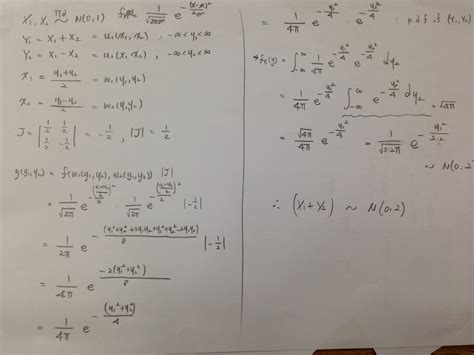 X₁, X₂ iid ~ N(0,1) 1/√(2πσ²) e^(-(x-μ)²/2σ²)
Y₁ = X₁ + X₂ = u₁(X₁, X₂) , -∞ < y₁ < ∞
Y₂ = X₁ - X₂ = u₂(X₁, X₂) , -∞ < y₂ < ∞
X₁ = (y₁+y₂)/2 = w₁(y₁, y₂)
X₂ = (y₁-y₂)/2 = w₂(y₁, y₂)
J = |1/2 1/2; 1/2 -1/2| = -1/2 , |J| = 1/2
g(y₁, y₂) = f(w₁(y₁, y₂), w₂(y₁, y₂)) |J|
= 1/√(2π) e^(-((y₁+y₂)/2)²/2) · 1/√(2π) e^(-((y₁-y₂)/2)²/2) |-1/2|
= 1/2π e^(-(y₁²+y₂²+2y₁y₂+y₁²+y₂²-2y₁y₂)/8) |-1/2|
= 1/4π e^(-2(y₁²+y₂²)/8)
= 1/4π e^(-(y₁²+y₂²)/4)
= 1/4π e^(-y₁²/4) e^(-y₂²/4) : p.d.f of (Y₁, Y₂)
f(y) = ∫_{-∞}^{∞} 1/4π e^(-y₁²/4) e^(-y₂²/4) dy₂
= 1/4π e^(-y₁²/4) ∫_{-∞}^{∞} e^(-y₂²/4) dy₂ = √4π
= √4π/4π e^(-y₁²/4) = 1/√(2·2π) e^(-y₁²/2·2)
~ N(0, 2)
∴ (X₁+X₂) ~ N(0, 2)